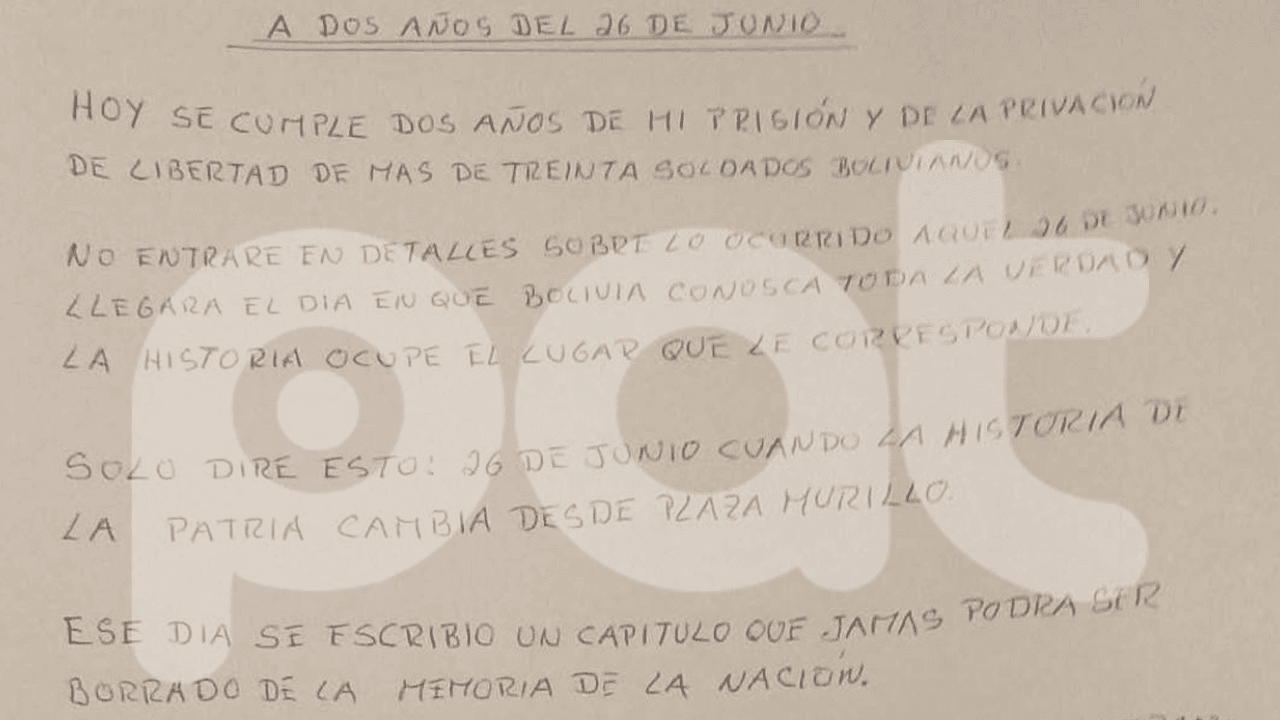 A DOS AÑOS DEL 26 DE JUNIO
HOY SE CUMPLE DOS AÑOS DE MI PRISIÓN Y DE LA PRIVACIÓN
DE LIBERTAD DE MAS DE TREINTA SOLDADOS BOLIVIANOS.
NO ENTRARE EN DETALLES SOBRE LO OCURRIDO AQUEL 26 DE JUNIO.
LLEGARA EL DIA EN QUE BOLIVIA CONOSCA TODA LA VERDAD Y
LA HISTORIA OCUPE EL LUGAR QUE LE CORRESPONDE.
SOLO DIRE ESTO: 26 DE JUNIO CUANDO LA HISTORIA DE
LA PATRIA CAMBIA DESDE PLAZA MURILLO.
ESE DIA SE ESCRIBIO UN CAPITULO QUE JAMAS PODRA SER
BORRADO DE LA MEMORIA DE LA NACIÓN.
pat